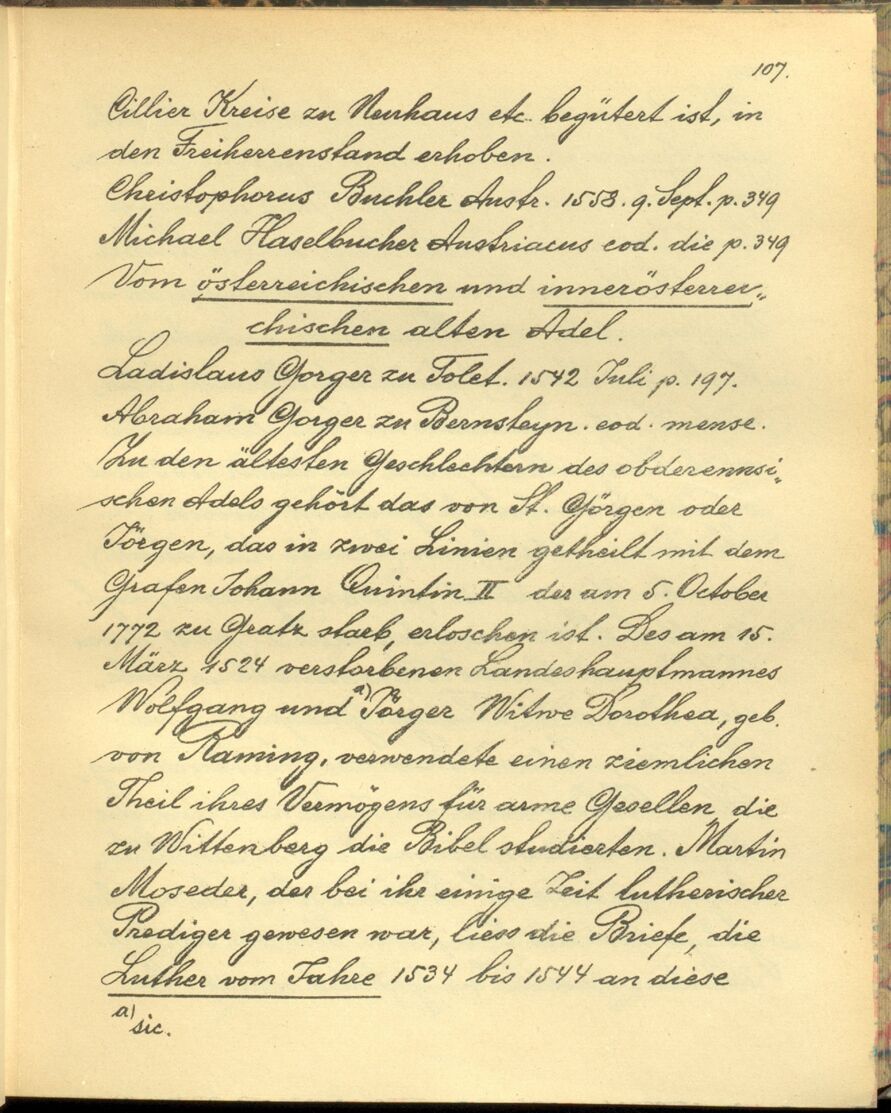 107.
Cillier Kreise zu Neuhaus etc. begütert ist, in
den Freiherrenstand erhoben.
Christophorus Buchler Austr. 1558. 9. Sept. p. 349
Michael Haselbucher Austriacus eod. die p. 349
Vom österreichischen und innerösterrei„
chischen alten Adel.
Ladislaus Gorger zu Tolet. 1542 Juli p. 197.
Abraham Gorger zu Bernsteyn. eod. mense.
Zu den ältesten Geschlechtern des obderennsi„
schen Adels gehört das von St. Görgen oder
Jörgen, das in zwei Linien getheilt mit dem
Grafen Johann Quintin II der am 5. October
1772 zu Gratz starb, erloschen ist. Des am 15.
März 1524 verstorbenen Landeshauptmannes
Wolfgang und a) Jörger Witwe Dorothea, geb.
von Raming, verwendete einen ziemlichen
Theil ihres Vermögens für arme Gesellen, die
zu Wittenberg die Bibel studierten. Martin
Moseder, der bei ihr einige Zeit lutherischer
Prediger gewesen war, liess die Briefe, die
Luther vom Jahre 1534 bis 1544 an diese
a) sic.